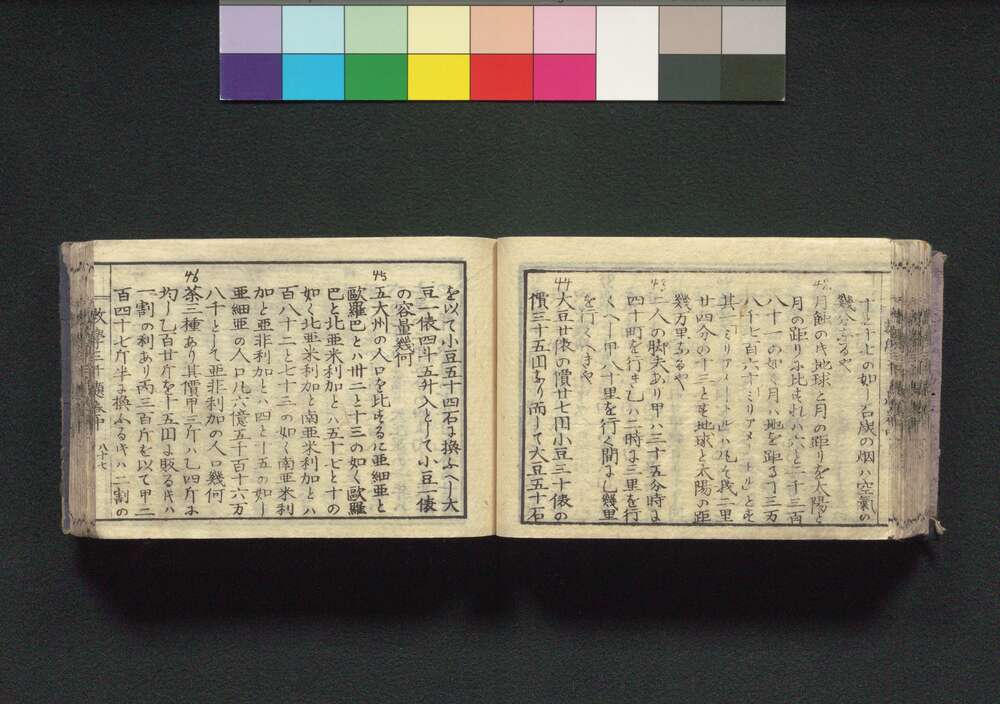 十と十七の如し石炭の烟ハ空氣の
幾分なるや
月蝕の時地球と月の距りを太陽と
月の距りに比すれハ六と二千三百
八十一の如く月ハ地を距る丁三万
八千七百六十ミリアメートルとす
其一ミリアメートルハ凡そ我二里
廿四分の十三とす地球と太陽の距
幾万里なるや
43
二人の脚夫あり甲ハ三十五分時に
四十町を行き乙ハ二時に三里を行
く〜甲八十里を行く間に乙幾里
を行くへきや
44
大豆廿俵の價廿七円小豆三十俵の
價三十五円なり而して大豆五十石
を以て小豆五十四石に換ふへし大
豆一俵四斗五升入として小豆一俵
の容量幾何
45
五大州の人口を比するに亜細亜と
歐羅巴とハ卅二と十三の如く歐羅
巴と北亜米利加とハ五十七と十の
如く北亜米利加と南亜米利加とハ
百八十二と七十三の如く南亜米利
加と亜非利加とハ四と十五の如し
亜細亜の人口凡六億五千百十六万
八千とす亜非利加の人口幾何
46
茶三種あり其價甲三斤ハ乙四斤に
均し乙百廿斤を十五円に販る時ハ
一割の利あり丙三百斤を以て甲二
百四十七斤半に換ふる時ハ二割の
數學三千題卷中
八十七